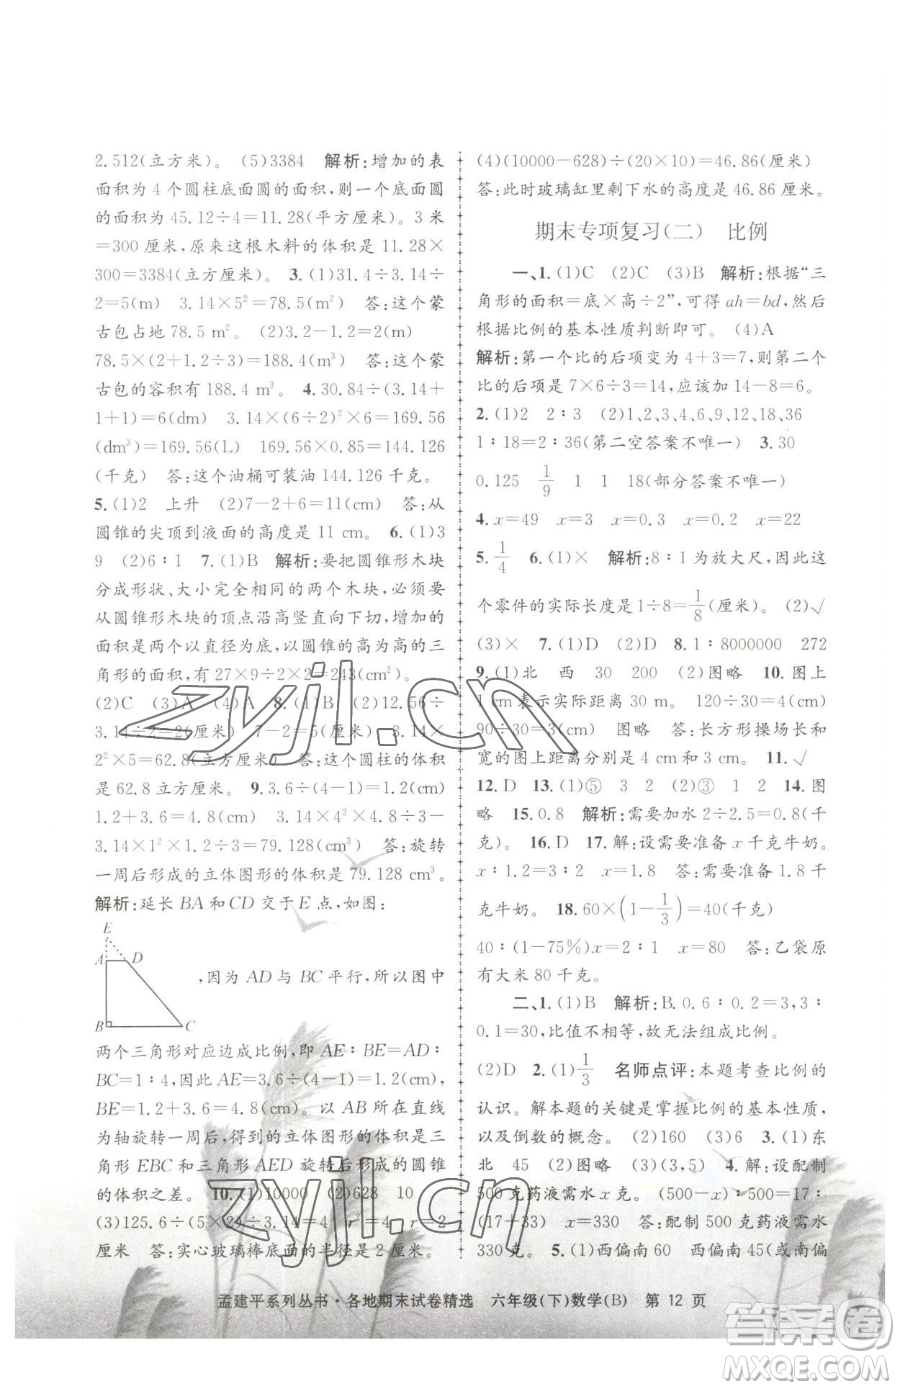 2.512(立方米)。 (5)3384 解析:增加的表
面积为 4 个圆柱底面圆的面积，则一个底面圆
的面积为 45.12÷4=11.28(平方厘米)。3 米
=300 厘米，原来这根木料的体积是 11.28×
300=3384(立方厘米)。 3. (1)31.4÷3.14÷
2=5(m) 3.14×5²=78.5(m²) 答:这个蒙
古包占地 78.5 m²。 (2)3.2-1.2=2(m)
78.5×(2+1.2÷3)=188.4(m³) 答:这个蒙
古包的容积有 188.4 m³。 4. 30.84÷(3.14+
1+1)=6(dm) 3.14×(6÷2)²×6=169.56
(dm³)=169.56(L) 169.56×0.85=144.126
(千克) 答:这个油桶可装油 144.126 千克。
5. (1)2 上升 (2)7-2+6=11(cm) 答:从
圆锥的尖顶到液面的高度是 11 cm。 6. (1)3
9 (2)6∶1 7. (1)B 解析:要把圆锥形木块
分成形状、大小完全相同的两个木块，必须要
从圆锥形木块的顶点沿高竖直向下切，增加的
面积是两个以直径为底、以圆锥的高为高的三
角形的面积，有 27×9÷2×2=243(cm²)。
(2)C (3)A (4)A 8. (1)B (2)12.56÷
3.14÷2=2(厘米) 7-2=5(厘米) 3.14×
2²×5=62.8(立方厘米) 答:这个圆柱的体积
是 62.8 立方厘米。 9. 3.6÷(4-1)=1.2(cm)
1.2+3.6=4.8(cm) 3.14×4²×4.8÷3-
3.14×1²×1.2÷3=79.128(cm³) 答:旋转
一周后形成的立体图形的体积是 79.128 cm³。
解析:延长 BA 和 CD 交于 E 点，如图:
E
A D
，因为 AD 与 BC 平行，所以图中
B C
两个三角形对应边成比例，即 AE∶BE=AD∶
BC=1∶4。因此 AE=3.6÷(4-1)=1.2(cm)，
BE=1.2+3.6=4.8(cm)。以 AB 所在直线
为轴旋转一周后，得到的立体图形的体积是三
角形 EBC 和三角形 AED 旋转后形成的圆锥
的体积之差。 10. (1)10000 (2)628 10
(3)125.6÷(5×2)÷3.14=4 r²=4 r=2
厘米 答:实心玻璃棒底面的半径是 2 厘米。
(4)(10000-628)÷(20×10)=46.86(厘米)
答:此时玻璃缸里剩下水的高度是 46.86 厘米。
期末专项复习(二) 比例
一、1. (1)C (2)C (3)B 解析:根据“三
角形的面积=底×高÷2”，可得 ah=bd，然后
根据比例的基本性质判断即可。 (4)A
解析:第一个比的后项变为 4+3=7，则第二个
比的后项是 7×6÷3=14，应该加 14-8=6。
2. (1)2 2∶3 (2)1,2,3,4,6,9,12,18,36
1∶18=2∶36(第二空答案不唯一) 3. 30
0.125 1/9 1 1 18(部分答案不唯一)
4. x=49 x=3 x=0.3 x=0.2 x=22
5. 1/4 6. (1)× 解析:8∶1 为放大尺，因此这
个零件的实际长度是 1÷8=1/8(厘米)。 (2)√
(3)× 7. (1)D (2)D 8. 1∶8000000 272
9. (1)北 西 30 200 (2)图略 10. 图上
1 cm 表示实际距离 30 m。 120÷30=4(cm)
90÷30=3(cm) 图略 答:长方形操场长和
宽的图上距离分别是 4 cm 和 3 cm。 11. √
12. D 13. (1)⑤ 3 2 (2)③ 1 2 14. 图
略 15. 0.8 解析:需要加水 2÷2.5=0.8(千
克)。 16. D 17. 解:设需要准备 x 千克牛奶。
x∶1.2=3∶0.3 x=12 答:需要准备 12 千
克牛奶。 18. 60×(1-1/3)=40(千克)
40∶(1-75%)x=2∶1 x=80 答:乙袋原
有大米 80 千克。
二、1. (1)B 解析:B. 0.6∶0.2=3,3∶
0.1=30，比值不相等，故无法组成比例。
(2)D 2. (1)1/3 名师点评:本题考查比例的
认识。解本题的关键是掌握比例的基本性质，
以及倒数的概念。 (2)12 (3)6 3. (1)东
北 45 (2)图略 (3)(3,5) 4. 解:设配制
500 克药液需水 x 克。 (500-x)∶500=17∶
(17+33) x=330 答:配制 500 克药液需水
330 克。 5. (1)西偏南 60 西偏南 45(或南偏
孟建平系列丛书·各地期末试卷精选 六年级(下)数学(B) 第 12 页
zyjl.cn
zyjl.cn
答案圈
MXQE.COM